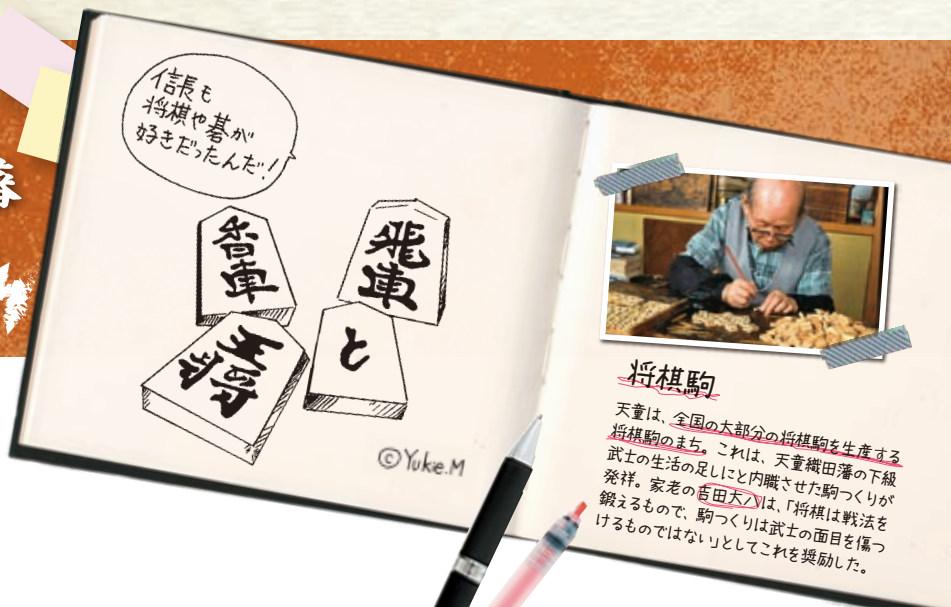 信長も
将棋や碁が
好きだったんだ!
香車
飛車
王将
と
©Yukie.M
将棋駒
天童は、全国の大部分の将棋駒を生産する
将棋駒のまち。これは、天童織田藩の下級
武士の生活の足しにと内職させた駒つくりが
発祥。家老の吉田大八は、「将棋は戦法を
鍛えるもので、駒つくりは武士の面目を傷つ
けるものではない」としてこれを奨励した。